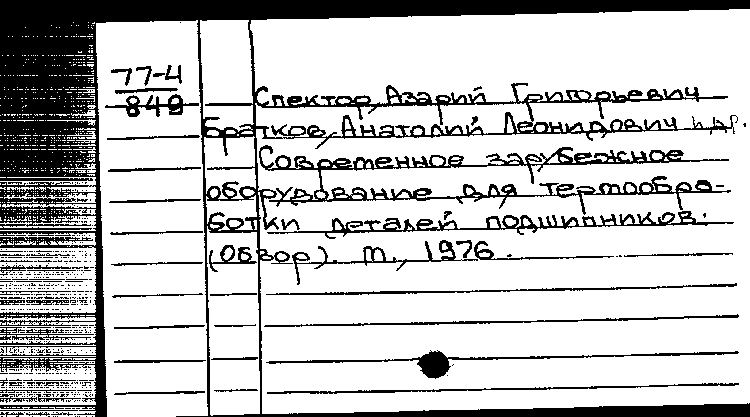 77-4
849
Спектор, Азарий Григорьевич
Братков, Анатолий Леонидович и др.
Современное зарубежное
оборудование для термообра-
ботки деталей подшипников.
(Обзор). М., 1976.